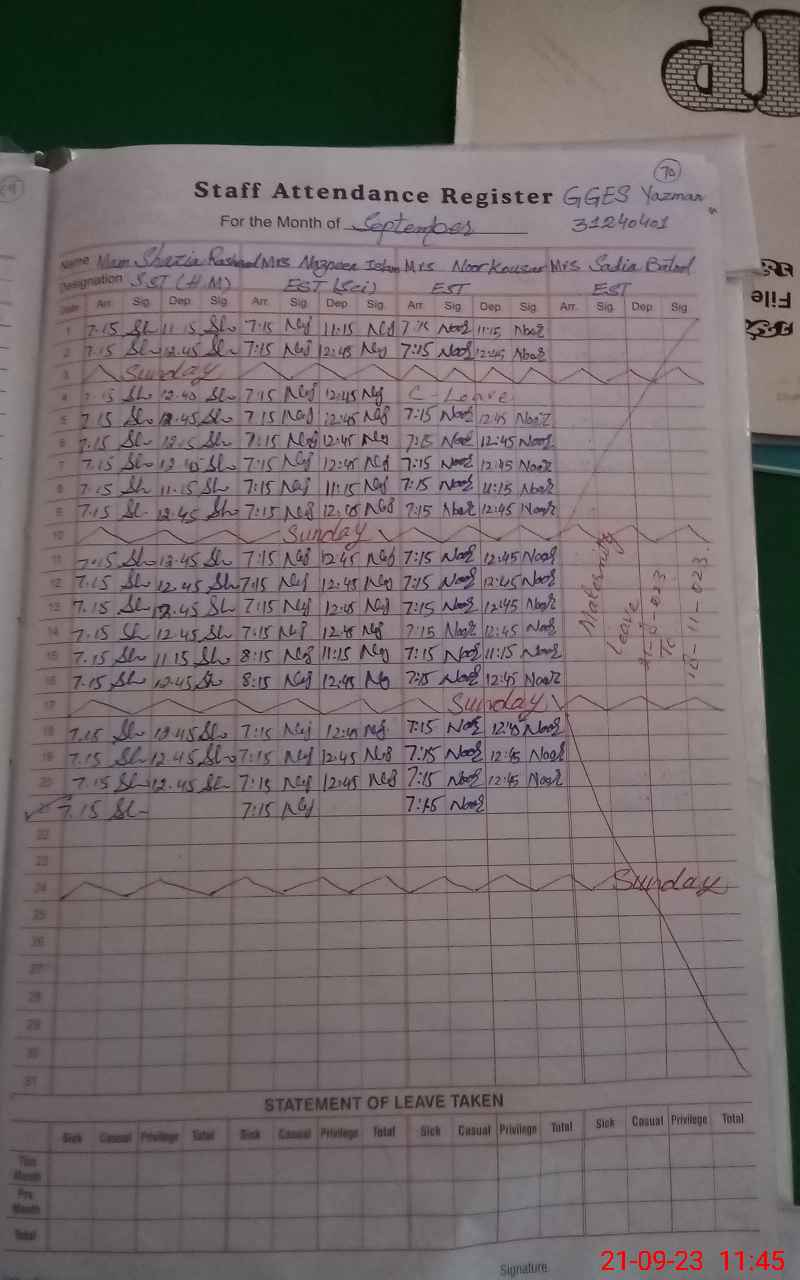 70
Staff Attendance Register GGES Yazman
For the Month of September 31240401
Name Mam Shazia Rasheed Mrs Nazneen Islam Mrs Noor Kousar Mrs Sadia Batool
Designation SST (H.M) EST (Sci) EST EST
Date Arr. Sig. Dep. Sig. Arr. Sig. Dep. Sig. Arr. Sig. Dep. Sig. Arr. Sig. Dep. Sig.
1 7.15 Sh 11.15 Sh 7:15 11:15 7:15 Noor 11:15 Noor
2 7.15 Sh 12.45 Sh 7:15 12:45 7:15 Noor 12:45 Noor
3 Sunday
4 7.15 Sh 12.45 Sh 7:15 12:45 C-Leave
5 7.15 Sh 12.45 Sh 7:15 12:45 7:15 Noor 12:45 Noor
6 7.15 Sh Sh 7:15 12:45 7:15 Noor 12:45 Noor
7 7.15 Sh 12.45 Sh 7:15 12:45 7:15 Noor 12:45 Noor
8 7.15 Sh 11.15 Sh 7:15 11:15 7:15 Noor 11:15 Noor
9 7.15 Sh 12.45 Sh 7:15 7:15 Noor 12:45 Noor
10 Sunday
11 7.15 Sh 12.45 Sh 7:15 12:45 7:15 Noor 12:45 Noor
12 7.15 Sh 12.45 Sh 7:15 12:45 7:15 Noor 12:45 Noor
13 7.15 Sh 12.45 Sh 7:15 12:45 7:15 Noor 12:45 Noor
14 7.15 Sh 12.45 Sh 7:15 12:45 7:15 Noor 12:45 Noor
15 7.15 Sh 11.15 Sh 8:15 11:15 7:15 Noor 11:15 Noor
16 7.15 Sh 12.45 Sh 8:15 12:45 7:15 Noor 12:45 Noor
17 Sunday
18 7.15 Sh 12.45 Sh 7:15 12:45 7:15 Noor 12:45 Noor
19 7.15 Sh 12.45 Sh 7:15 12:45 7:15 Noor 12:45 Noor
20 7.15 Sh 12.45 Sh 7:15 12:45 7:15 Noor 12:45 Noor
7.15 Sh 7:15 7:15 Noor
22
23
24 Sunday
25
26
27
28
29
30
31
Maternity
Leave
To
STATEMENT OF LEAVE TAKEN
Sick Casual Privilege Total Sick Casual Privilege Total Sick Casual Privilege Total Sick Casual Privilege Total
This Month
Pre. Month
Total
Signature
File
21-09-23 11:45